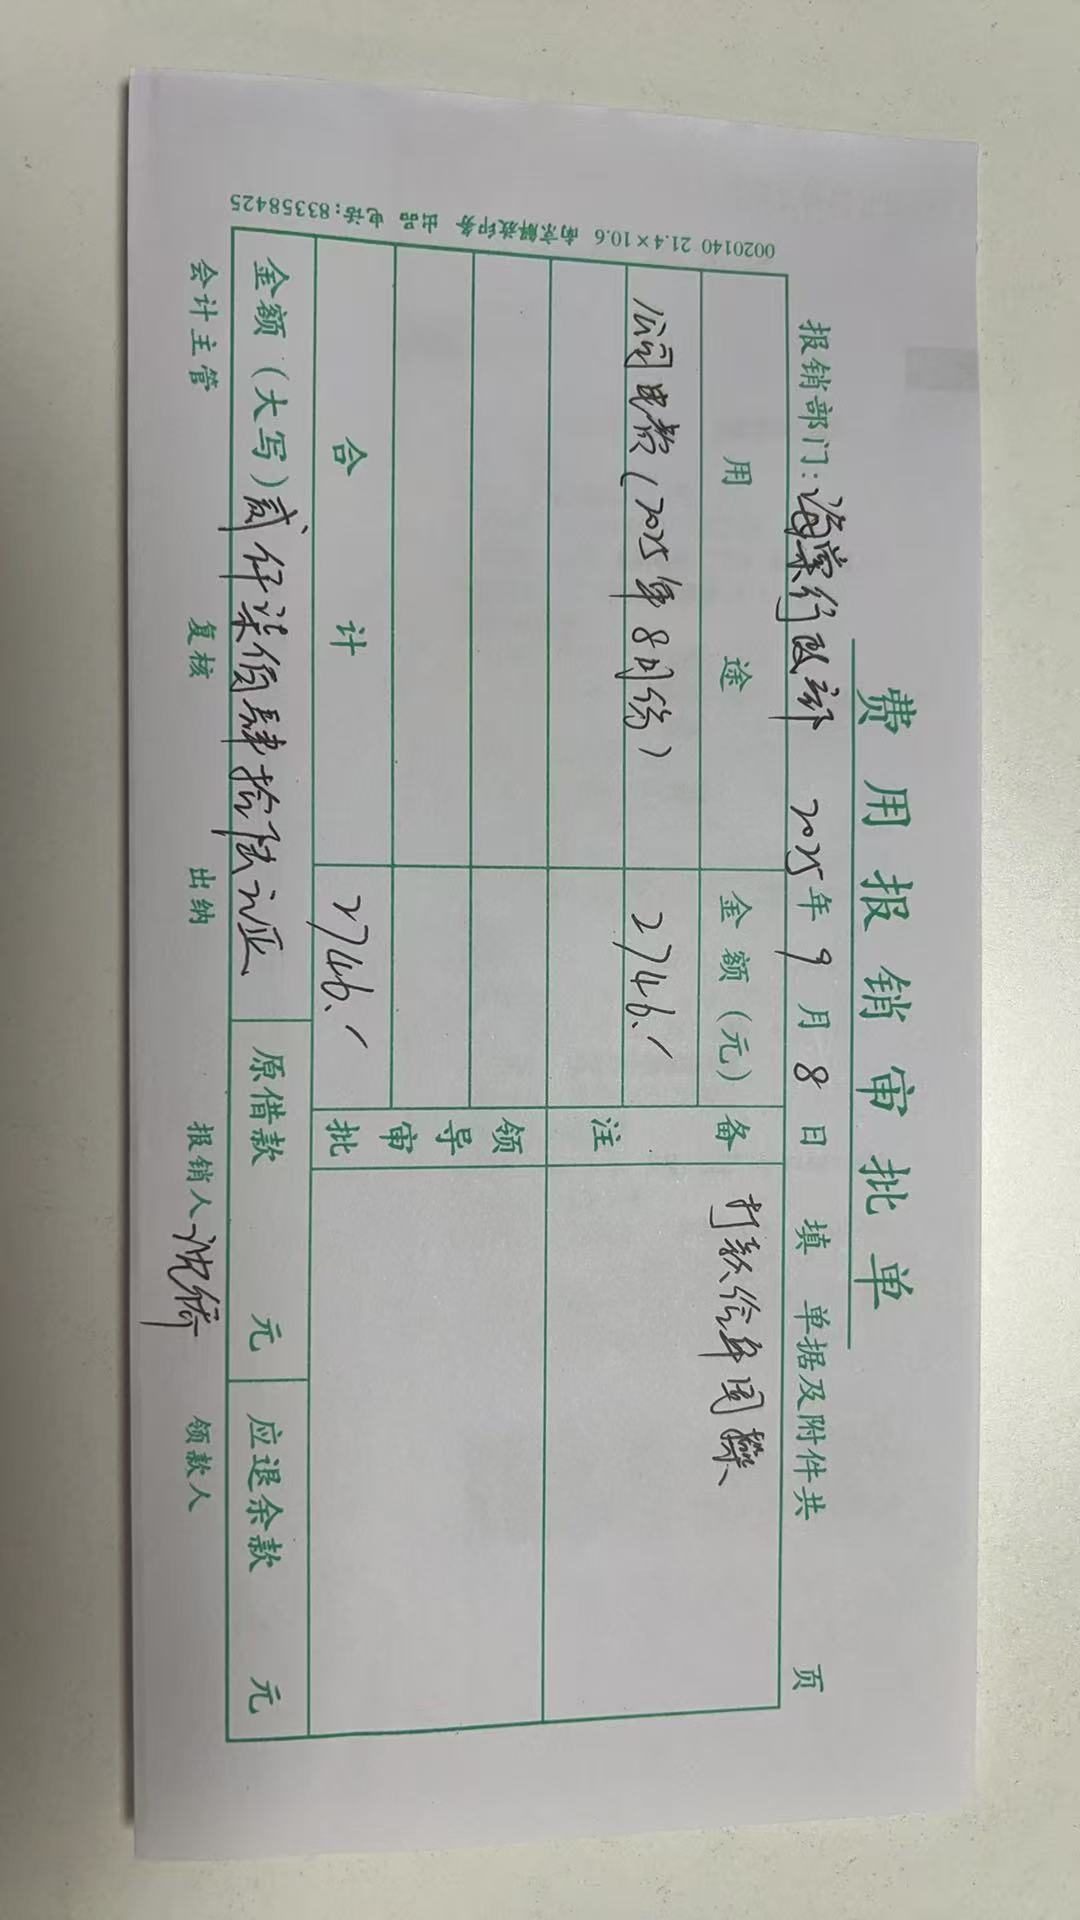 费用报销审批单
报销部门:海棠行政部 2025年9月8日填 单据及附件共 页
用途 金额(元) 备注 打款给年国樂
公司电费(2025年8月份) 2746.-
领导审批
合计 2746.-
金额(大写)贰仟柒佰肆拾陆元正 原借款 元 应退余款 元
会计主管 复核 出纳 报销人 沈侨 领款人
0020140 21.4×10.6 南京解放印务 出品 电话:83358425